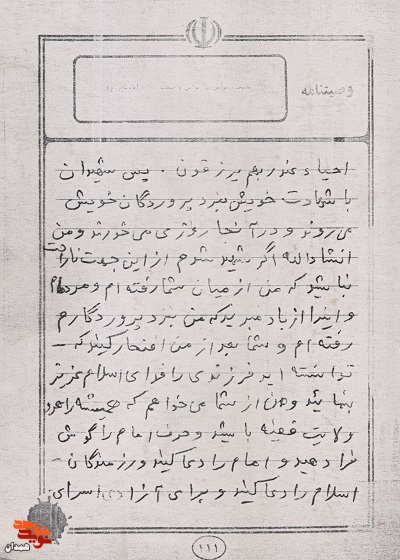 وصیتنامه
احیاء عندربهم یرزقون . پس شهیدان
با شهادت خویش نزد پروردگان خویش
می روند و در آنجا روزی می خورند و من
انشاء الله اگر شهید شدم از این جهت ناراحت
نباشید که من از میان شما رفته ام و مرده‌ام
و اینرا از یاد مبرید که من نزد پروردگارم
رفته ام و شما بعد از من افتخار کنید که -
توانسته اید فرزندی را فدای اسلام عزیز
بنمائید و من از شما می خواهم که همیشه
ولایت فقیه باشید و حرف امام را گوش
فرا دهید و امام را دعا کنید و رزمندگان -
اسلام را دعا کنید و برای آزادی اسرای
۱۱۱
نوید شاهد
همدان